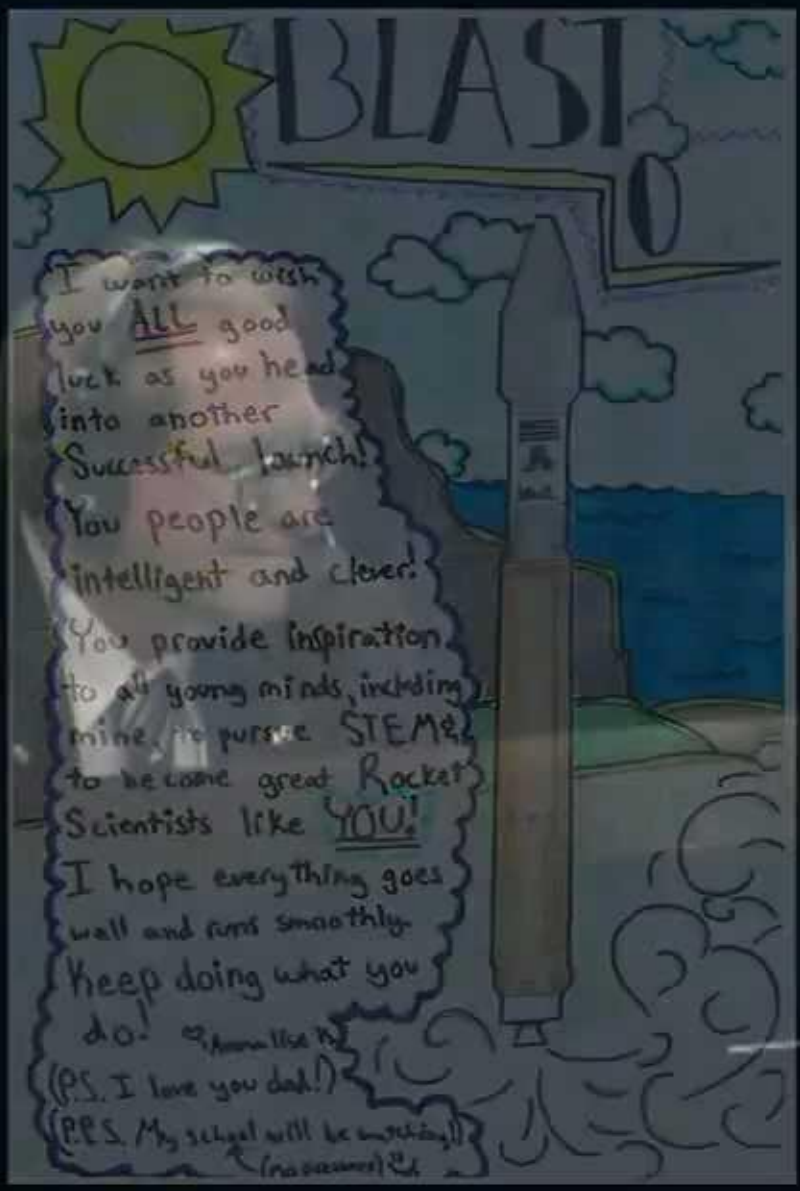 BLAST
O
I want to wish
you ALL good
luck as you head
into another
Successful launch!
You people are
intelligent and clever!
You provide inspiration
to all young minds, including
mine, to pursue STEM &
to become great Rocket
Scientists like YOU!
I hope everything goes
well and runs smoothly.
Keep doing what you
do! ♡Annalise
(P.S. I love you dad!)
(P.P.S. My school will be watching!)
(no pressure)